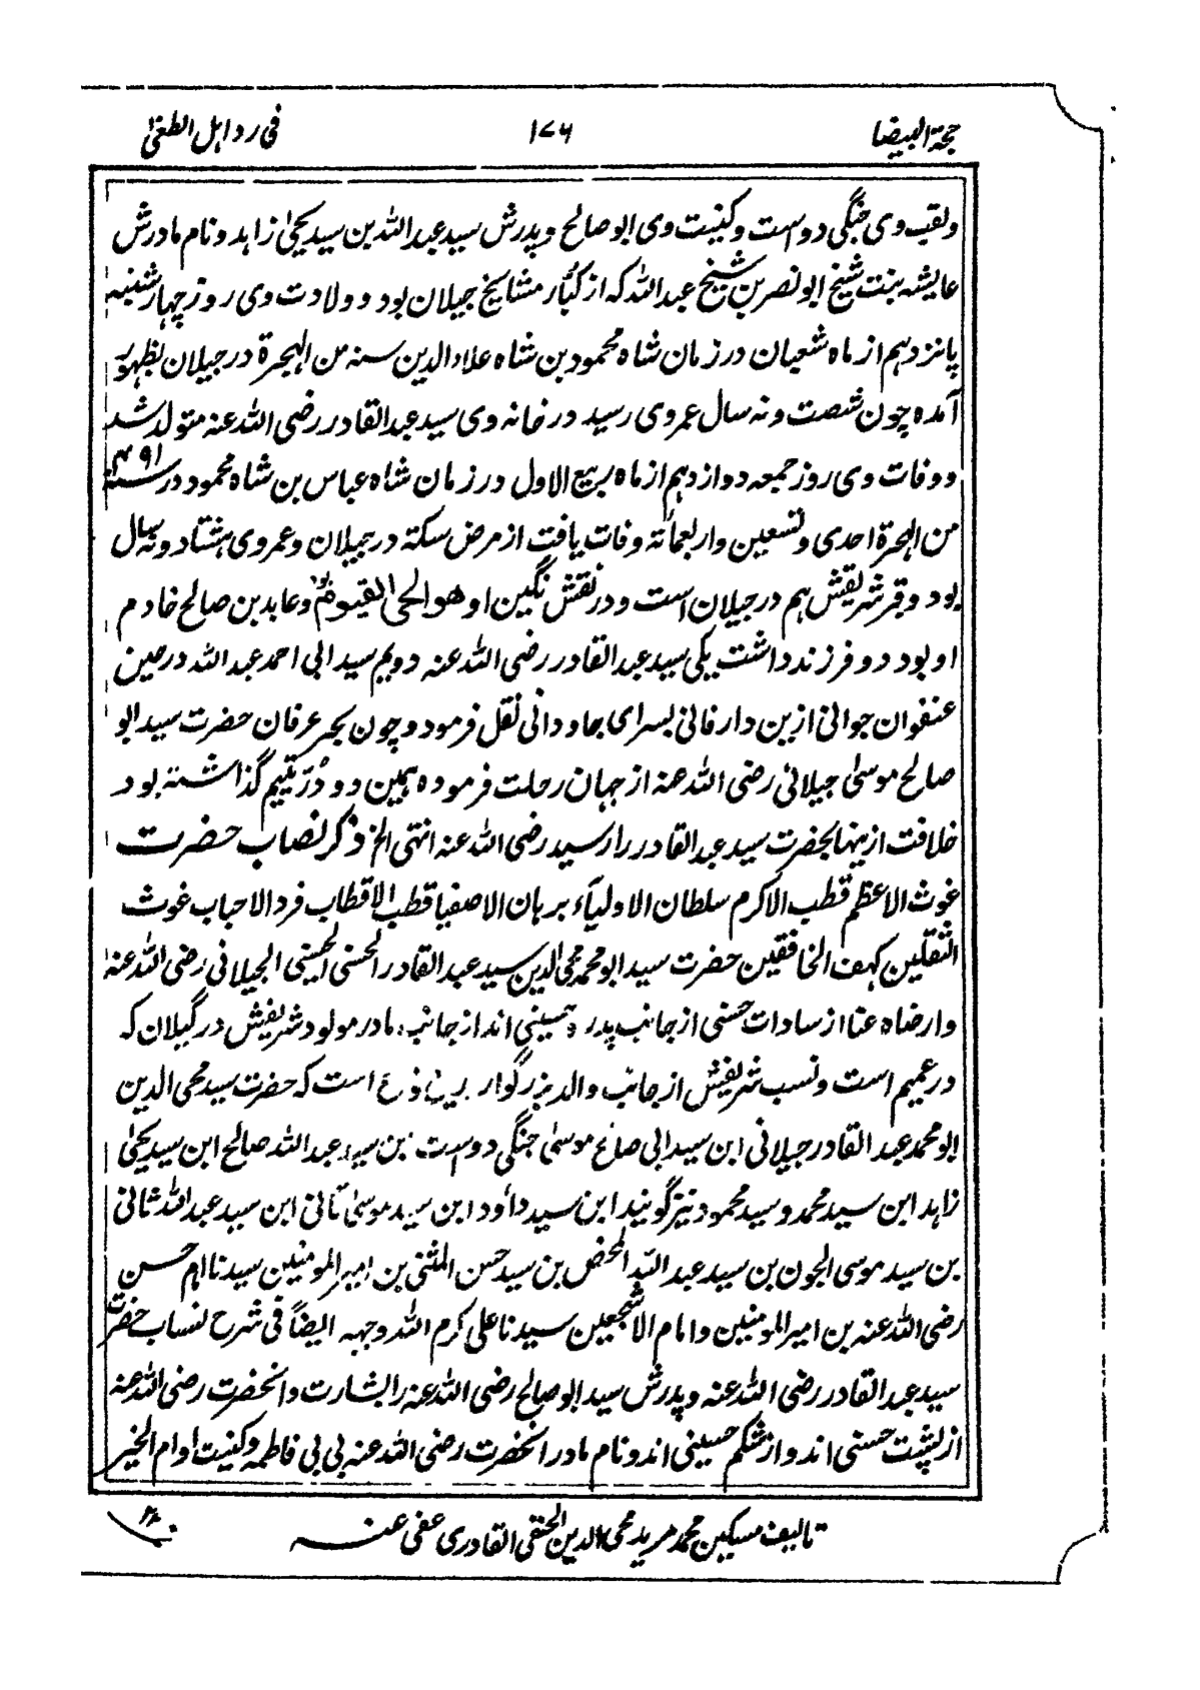 حجة البيضا ۱۷۶ فی رد اهل الطغیٰ
ولقب وی جنگی دوست وکنیت وی ابو صالح وپدرش سید عبد الله بن سید یحییٰ زاهد ونام مادرش
عایشه بنت شیخ ابو نصر بن شیخ عبد الله که از کبّار مشایخ جیلان بود وولادت وی روز چهار شنبه
پانزدهم از ماه شعبان در زمان شاه محمود بن شاه علاء الدین سنه من الهجرة در جیلان بظهور
آمده چون شصت ونه سال عمر وی رسید در خانه وی سید عبد القادر رضی الله عنه متولد شد
ووفات وی روز جمعه دوازدهم از ماه ربیع الاول در زمان شاه عباس بن شاه محمود در سنه ۴۹۱
من الهجرة احدی وتسعین واربعمائة وفات یافت از مرض سکته در جیلان وعمر وی هشتاد ونه سال
بود وقبر شریفش هم در جیلان است ودر نقش نگین او هو الحی القیوم بود وعابد بن صالح خادم
او بود دو فرزند داشت یکی سید عبد القادر رضی الله عنه دویم سید ابی احمد عبد الله در عین
عنفوان جوانی ازین دار فانی بسرای جاودانی نقل فرمود وچون بحر عرفان حضرت سید ابو
صالح موسیٰ جیلانی رضی الله عنه از جهان رحلت فرموده همین دو دُرّ یتیم گذاشته بود
خلافت ازینها بحضرت سید عبد القادر را رسید رضی الله عنه انتهی الخ ذکر نصاب حضرت
غوث الاعظم قطب الاکرم سلطان الاولیآء برهان الاصفیا قطب الاقطاب فرد الاحباب غوث
الثقلین کهف الخافقین حضرت سید ابو محمد محی الدین سید عبد القادر الحسنی الحسینی الجیلانی رضی الله عنه
وارضاه عنا از سادات حسنی از جانب پدر وحسینی اند از جانب مادر مولود شریفش در گیلان که
در عمیم است ونسب شریفش از جانب والد بزرگوار است که حضرت سید محی الدین
ابو محمد عبد القادر جیلانی ابن سید ابی صالح موسیٰ جنگی دوست بن سید عبد الله صالح ابن سید یحییٰ
زاهد ابن سید محمد وسید محمود نیز گویند ابن سید داؤد ابن سید موسیٰ ثانی ابن سید عبد الله ثانی
بن سید موسی الجون بن سید عبد الله المحض بن سید حسن المثنی بن امیر المومنین سیدنا امام حسن
رضی الله عنه بن امیر المومنین وامام الاشجعین سیدنا علی کرم الله وجهه ایضاً فی شرح نساب حضرت
سید عبد القادر رضی الله عنه وپدرش سید ابو صالح رضی الله عنه را بشارت وانحضرت رضی الله عنه
از پشت حسنی اند واز شکم حسینی اند ونام مادر انحضرت رضی الله عنه بی بی فاطمه وکنیت او ام الخیر
تالیف مسکین محمد مرید محی الدین الحنفی القادری عفی عنه